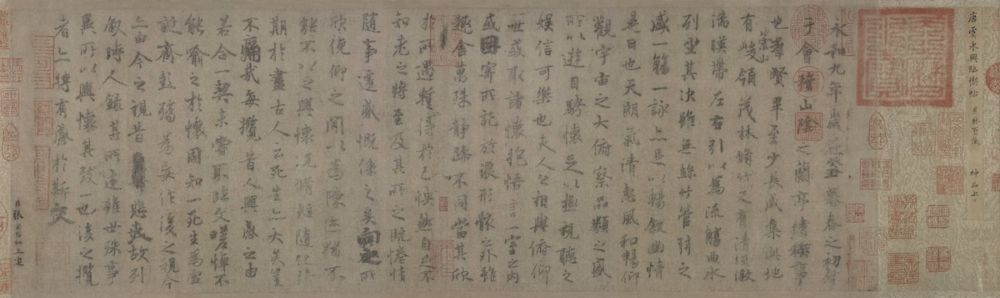 唐虞永興臨禊帖
永和九年歲在癸丑暮春之初會
于會稽山陰之蘭亭脩稧事
也羣賢畢至少長咸集此地
有崇山峻領茂林脩竹又有清流激
湍暎帶左右引以為流觴曲水
列坐其次雖無絲竹管弦之
盛一觴一詠亦足以暢敘幽情
是日也天朗氣清惠風和暢仰
觀宇宙之大俯察品類之盛
所以遊目騁懷足以極視聽之
娛信可樂也夫人之相與俯仰
一世或取諸懷抱悟言一室之內
或因寄所託放浪形骸之外雖
趣舍萬殊靜躁不同當其欣
於所遇暫得於己快然自足不
知老之將至及其所之既惓情
隨事遷感慨係之矣向之所
欣俛仰之閒以為陳迹猶不
能不以之興懷況脩短隨化終
期於盡古人云死生亦大矣豈
不痛哉每攬昔人興感之由
若合一契未嘗不臨文嗟悼不
能喻之於懷固知一死生為虛
誕齊彭殤為妄作後之視今
亦由今之視昔悲夫故列
敘時人錄其所述雖世殊事
異所以興懷其致一也後之攬
者亦將有感於斯文
臣張金界奴上進